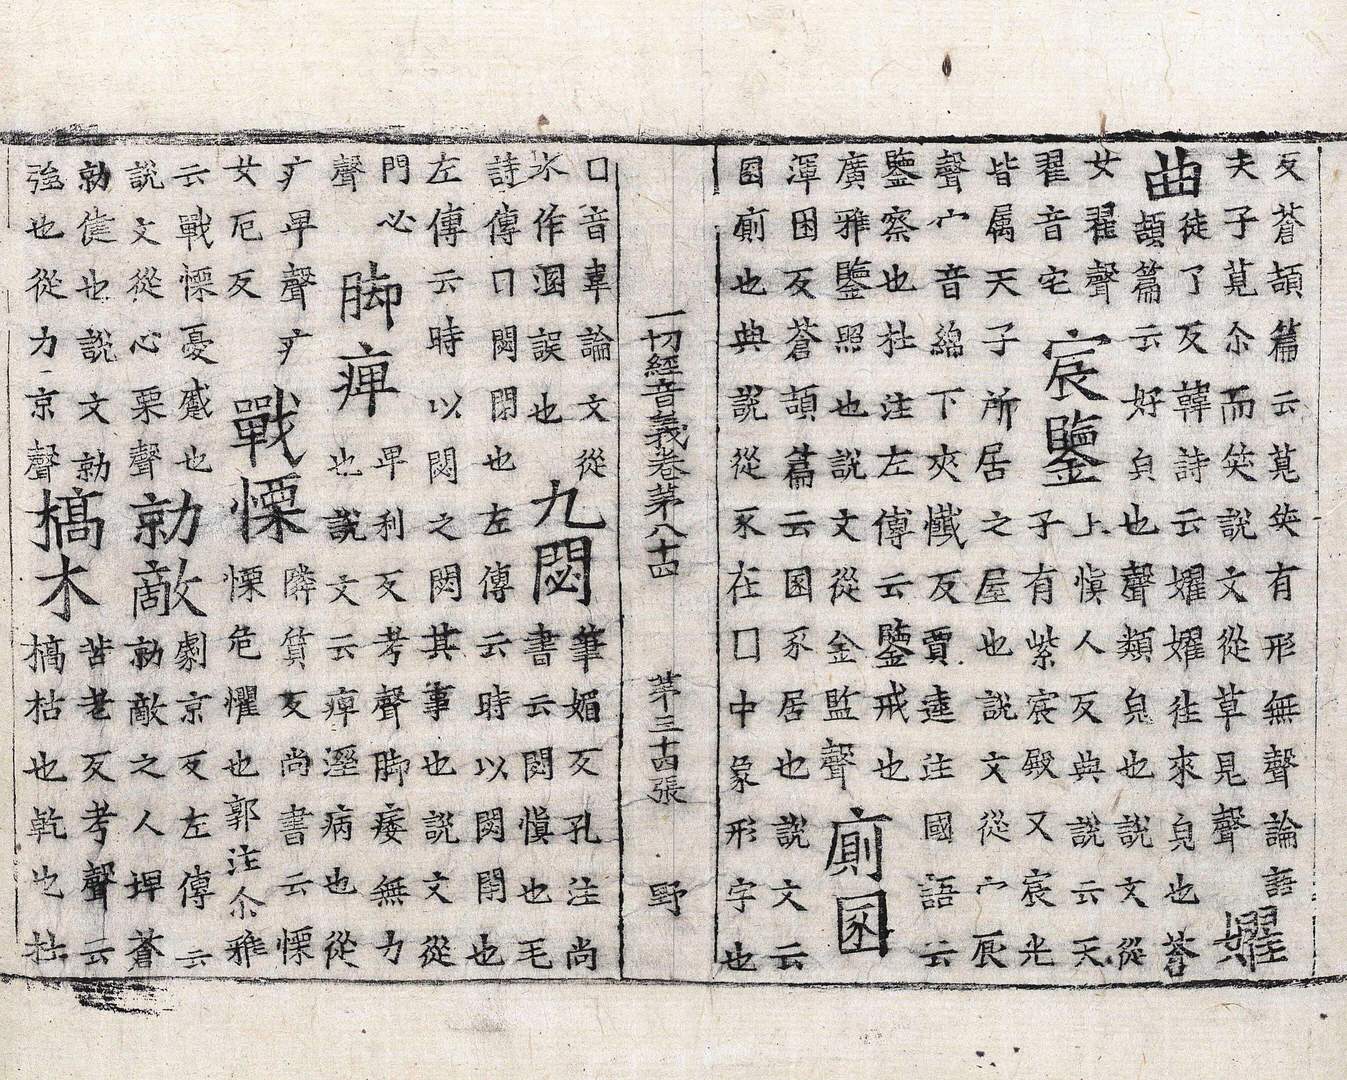 反蒼頡篇云莧莧有形無聲論語
夫子莧尒而笑說文從草見聲
嬥曲
徒了反韓詩云嬥嬥往來皃也蒼
頡篇云好皃也聲類皃也說文從
女翟聲
翟音宅
宸鑒
上慎人反與說云天
子有紫宸殿又宸光
皆屬天子所居之屋也說文從宀辰
聲宀音綿下夾懺反賈逵注國語云
鑒察也杜注左傳云鑒戒也
廣雅鑒照也說文從金監聲
廁圂
渾困反蒼頡篇云圂豕居也說文云
圂廁也與說從豕在囗中象形字也
一切經音義卷苐八十四 苐三十四張 野
囗音韋論文從
水作溷誤也
九閟
筆媚反孔注尚
書云閟慎也毛
詩傳曰閟閉也左傳云時以閟閉也
左傳云時以閟之閟其事也說文從
門必
聲
脚痺
卑利反考聲脚痿無力
也說文云痺溼病也從
疒卑聲疒
女厄反
戰慄
隣質反尚書云慄
慄危懼也郭注尒雅
云戰慄憂慼也
說文從心栗聲
勍敵
劇京反左傳云
勍敵之人埤蒼
勍健也說文勍
強也從力京聲
槁木
苦老反考聲云
槁枯也乾也杜